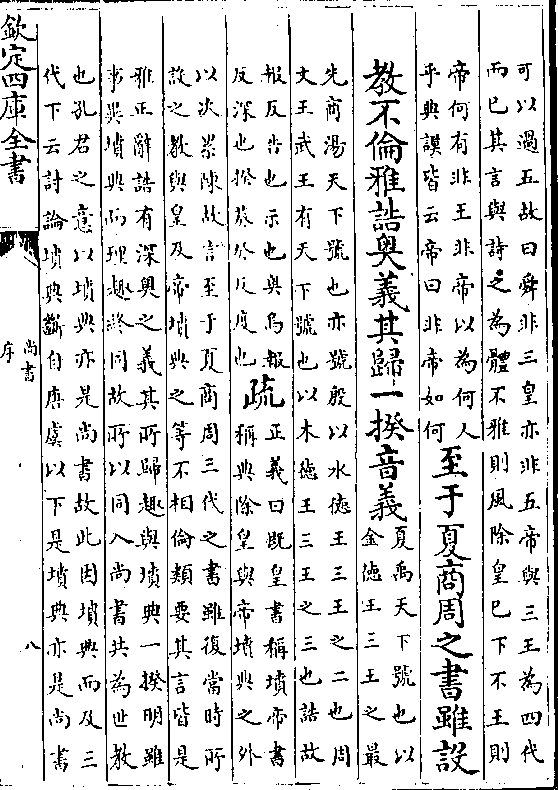 可以過五故曰舜非三皇亦非五帝與三王為四代
而已其言與詩之為體不雅則風除皇巳下不王則
帝何有非王非帝以為何人
乎典謨皆云帝曰非帝如何
至于夏商周之書雖設
教不倫雅誥奥義其歸一揆音義
夏禹天下號也以
金徳王三王之最
先商湯天下號也亦號殷以水徳王三王之二也周
文王武王有天下號也以木徳王三王之三也誥故
報反告也示也奥烏報
反深也揆葵癸反度也
疏
正義曰既皇書稱墳帝書
稱典除皇與帝墳典之外
以次累陳故言至于夏商周三代之書雖復當時所
設之教與皇及帝墳典之等不相倫類要其言皆是
雅正辭誥有深奥之義其所歸趣與墳典一揆明雖
事異墳典而理趣終同故所以同入尚書共為世教
也孔君之意以墳典亦是尚書故此因墳典而及三
代下云討論墳典斷自唐虞以下是墳典亦是尚書
欽定四庫全書
尚書
序
八